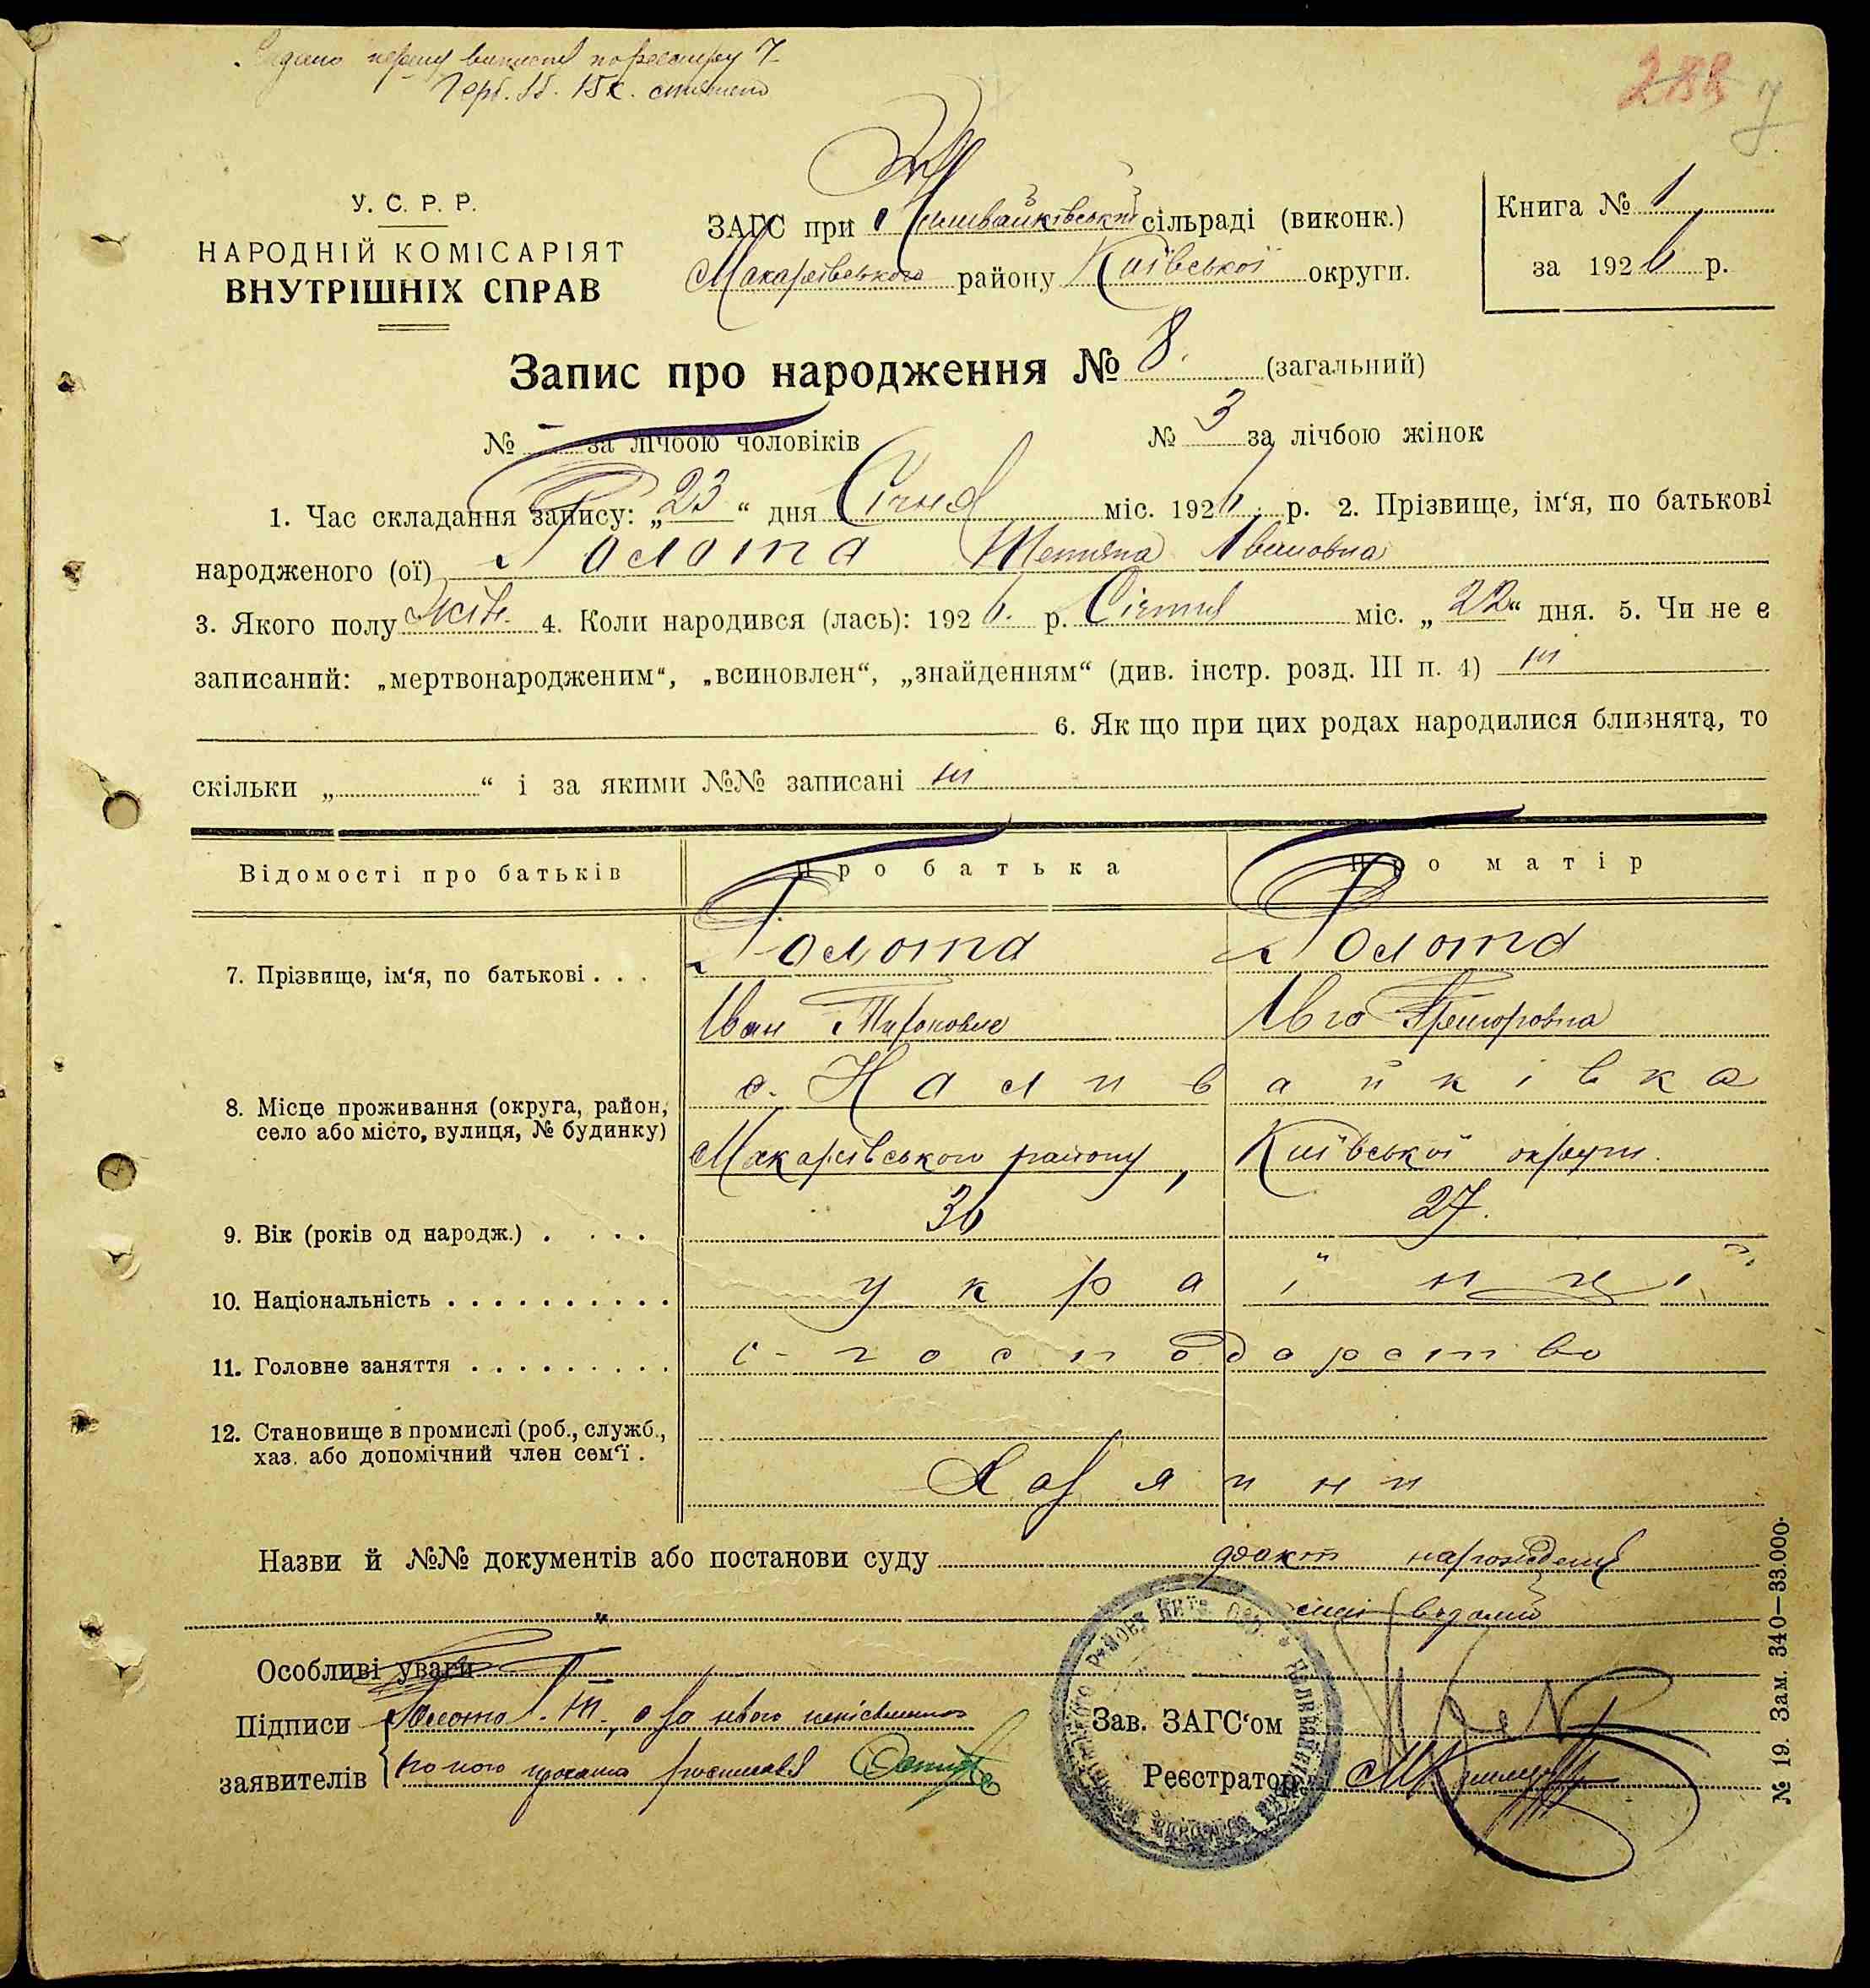 Видано першу виписку по реєстру 7
Герб. зб. 15 к. стягнено
7
У. С. Р. Р.
НАРОДНІЙ КОМІСАРІЯТ
ВНУТРІШНІХ СПРАВ
ЗАГС при Наливайківській сільраді (виконк.)
Макарівського району Київської округи.
Книга № 1
за 1926 р.
Запис про народження № 8. (загальний)
№ - за лічбою чоловіків № 3 за лічбою жінок
1. Час складання запису: „23“ дня Січня міс. 1926 р. 2. Прізвище, ім‘я, по батькові
народженого (ої) Голота Тетяна Івановна
3. Якого полу жін. 4. Коли народився (лась): 1926. р. Січня міс. „22“ дня. 5. Чи не є
записаний: „мертвонародженим“, „всиновлен“, „знайденням“ (див. інстр. розд. III п. 4) ні
6. Як що при цих родах народилися близнята, то
скільки „ “ і за якими №№ записані ні
Відомості про батьків Про батька Про матір
7. Прізвище, ім‘я, по батькові . . . Голота Голота
Іван Григоровна
8. Місце проживання (округа, район, с. Наливайківка
село або місто, вулиця, № будинку) Макарівського району, Київської округи.
9. Вік (років од народж.) . . . . 36 27.
10. Національність . . . . . . . . . . українці
11. Головне заняття . . . . . . . . . с-господарство
12. Становище в промислі (роб., служб.,
хаз. або допомічний член сем‘ї .
Хазяини
Назви й №№ документів або постанови суду факт народження
Особливі уваги
Підписи Голота а за нього неписьменного
заявителів по його проханню росписався
Зав. ЗАГС‘ом
Реєстратор
№ 19. Зам. 340—33.000.